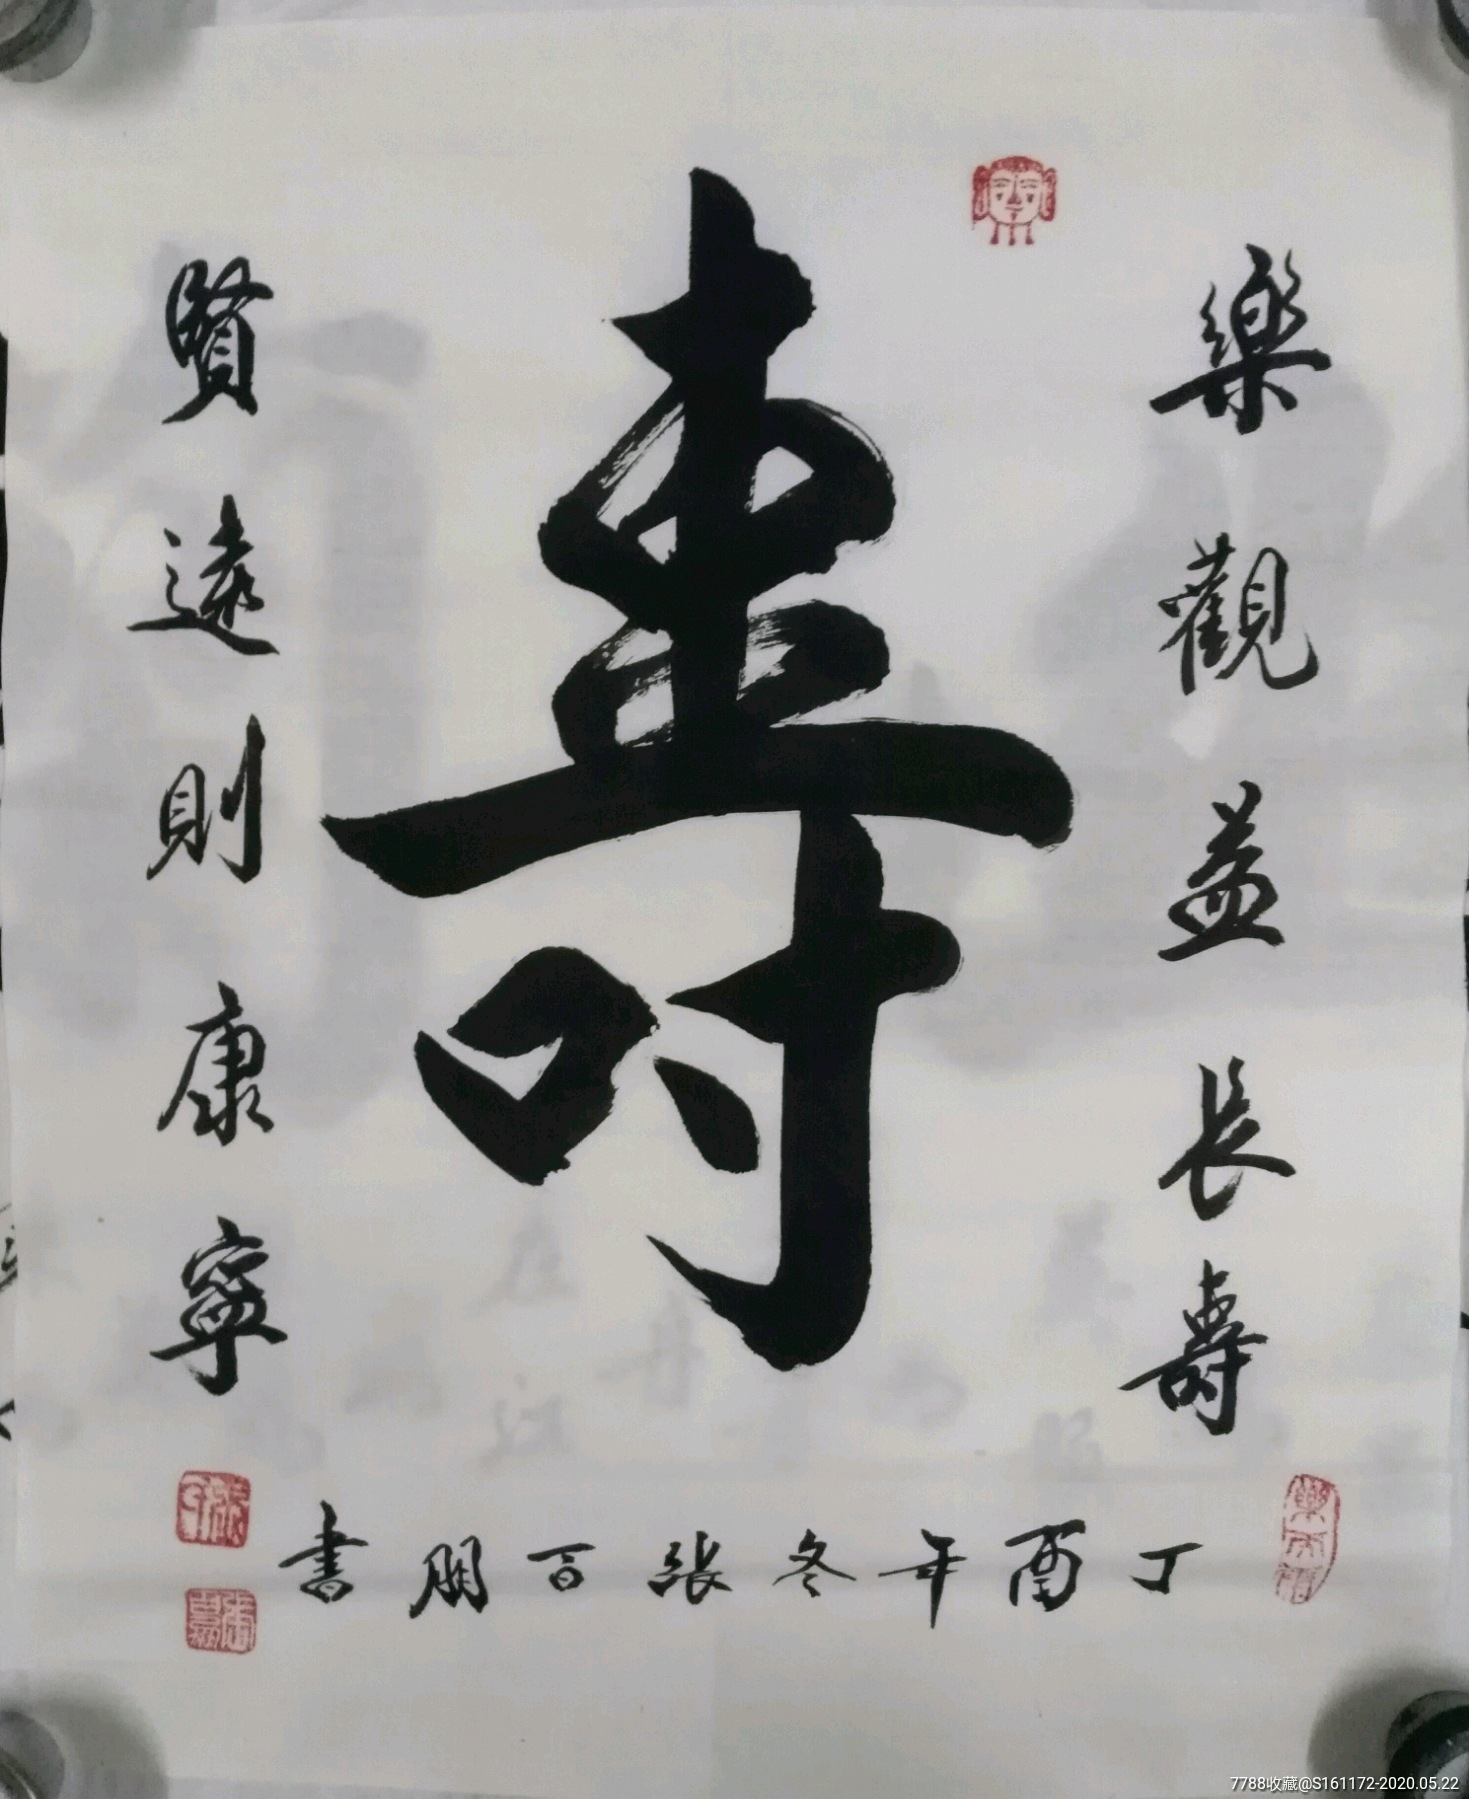 樂觀益長壽
壽
賢遠則康寧
丁酉年冬張百朋書
7788收藏@S161172-2020.05.22